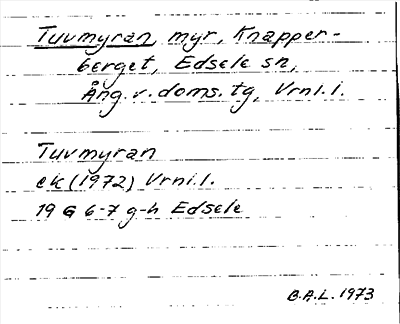 Tuvmyran, myr, Knapper-
berget, Edsele sn,
Ång. v. doms. tg, Vrnl. l.
Tuvmyran
ek (1972) Vrnl. l.
19 G 6-7 g-h Edsele
B.A.L. 1973